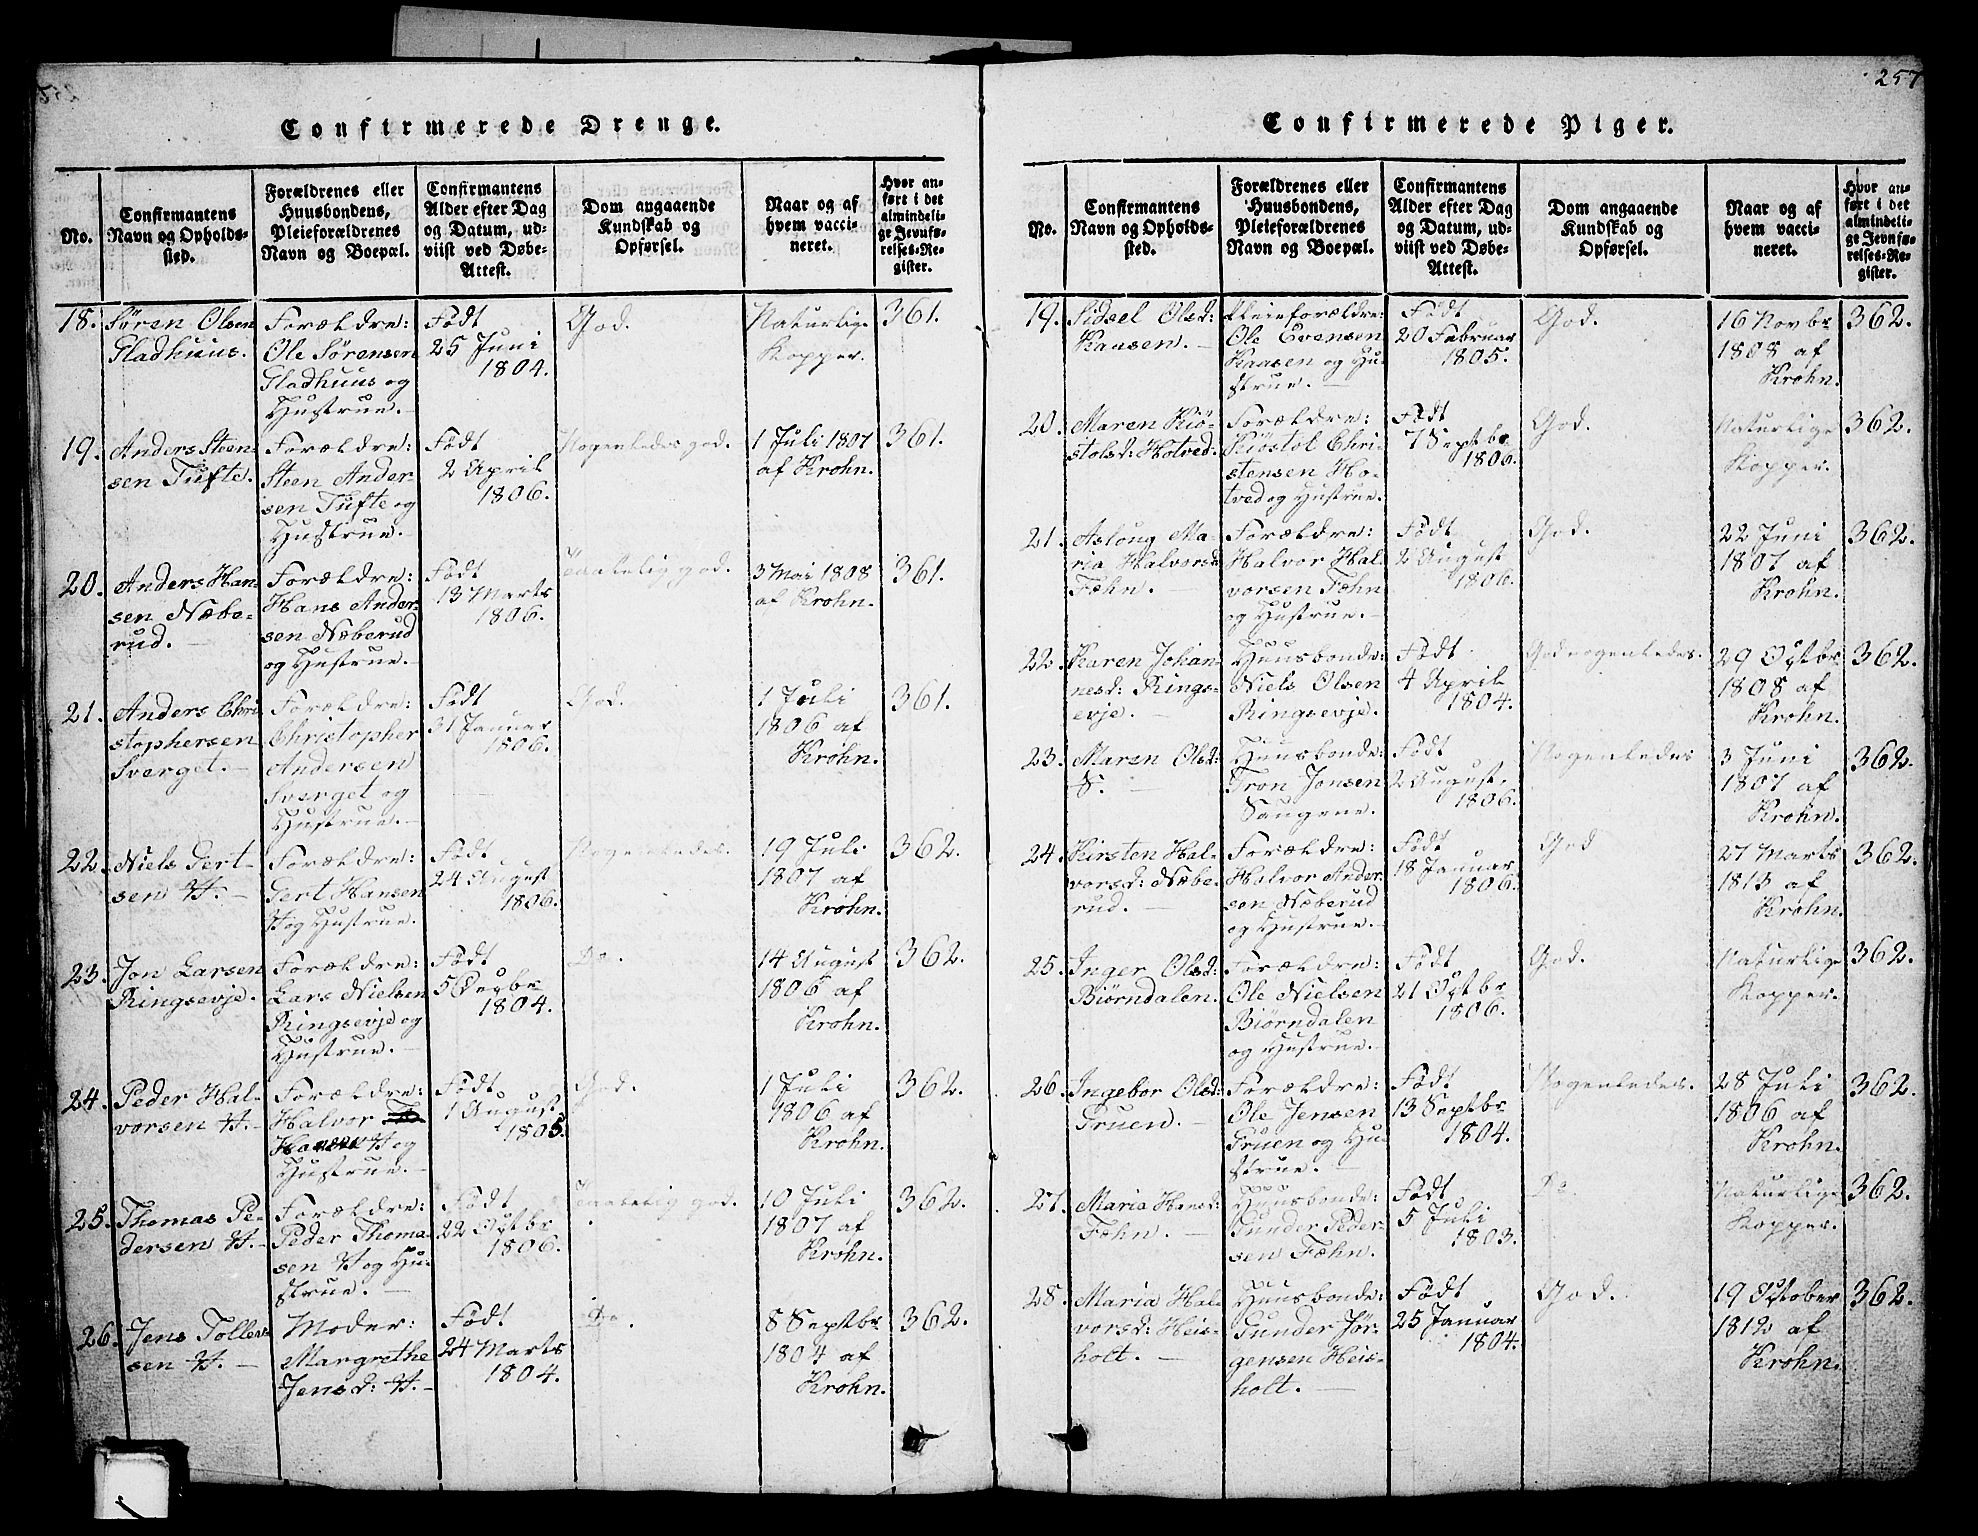 257
Confirmerede Drenge.
No.
Confirmantens
Navn og Opholds-
sted.
Forældrenes eller
Huusbondens,
Pleieforældrenes
Navn og Boepæl.
Confirmantens
Alder efter Dag
og Datum, ud-
viist ved Døbe-
Attest.
Dom angaaende
Kundskab og
Opførsel.
Naar og af
hvem vacci-
neret.
Hvor an-
ført i det
almindeli-
ge Jevnfø-
relses-Re-
gister.
18.
Søren Olsen
Gladhuus.
Forældre:
Ole Sørensen
Gladhuus og
Hustrue.
Født
25 Juni
1804.
God.
Naturlige
Kopper.
361.
19.
Anders Steen-
sen Tufte.
Forældre:
Steen Ander-
sen Tufte og
Hustrue.
Født
2 April
1806.
Nogenledes god.
1 Juli 1807
af Krohn.
361.
20.
Anders Han-
sen Næbe-
rud.
Forældre:
Hans Ander-
sen Næberud
og Hustrue.
Født
13 Marts
1806.
Taalelig god.
3 Mai 1808
af Krohn.
361.
21.
Anders Chri-
stophersen
Sverget.
Forældre:
Christopher
Andersen
Sverget og
Hustrue.
Født
31 Januar
1806.
God.
1 Juli
1806 af
Krohn.
361.
22.
Niels Gert-
sen H.
Forældre:
Gert Hansen
H og Hustrue.
Født
24 August
1806.
Nogenledes.
19 Juli
1807 af
Krohn.
362.
23.
Jon Larsen
Ringsevje.
Forældre:
Lars Nielsen
Ringsevje og
Hustrue.
Født
5
1804.
Do.
14 August
1806 af
Krohn.
362.
24.
Peder Hal-
vorsen H.
Forældre:
Halvor
H og
Hustrue.
Født
1 August
1805.
God.
1 Juli
1806 af
Krohn.
362.
25.
Thomas Pe-
dersen H.
Forældre:
Peder Thoma-
sen H og Hu-
strue.
Født
22 Octbr
1806.
Taalelig god.
10 Juli
1807 af
Krohn.
362.
26.
Jens Tollev-
sen H.
Moder:
Margrethe
Jensd: H.
Født
24 Marts
1804.
Do.
8 Septbr
1804 af
Krohn.
362.
Confirmerede Piger.
No.
Confirmantens
Navn og Opholds-
sted.
Forældrenes eller
Huusbondens,
Pleieforældrenes
Navn og Boepæl.
Confirmantens
Alder efter Dag
og Datum, ud-
viist ved Døbe-
Attest.
Dom angaaende
Kundskab og
Opførsel.
Naar og af
hvem vacci-
neret.
Hvor an-
ført i det
almindeli-
ge Jevnfø-
relses-Re-
gister.
19.
Sidsel Olsd:
Kaasen.
Pleieforældre:
Ole Evensen
Kaasen og Hu-
strue.
Født
20 Februar
1805.
God.
16 Novbr
1808 af
Krohn.
362.
20.
Maren Kiø-
stolsd: Hotved.
Forældre:
Kiøstol Chri-
stensen Ho-
tved og Hustrue.
Født
7 Septbr
1806.
God.
Naturlige
Kopper.
362.
21.
Asloug Ma-
ria Halvorsd
Fæhn.
Forældre:
Halvor Hal-
vorsen Fæhn
og Hustrue.
Født
2 August
1806.
God.
22 Juni
1807 af
Krohn.
362.
22.
Karen Johan-
nesd: Rings-
evje.
Huusbonde:
Niels Olsen
Ringsevje.
Født
4 April
1804.
God nogenledes.
29 Octbr
1808 af
Krohn.
362.
23.
Maren Olsd:
S.
Huusbonde:
Tron Jonsen
Saugene.
Født
2 August
1806.
Nogenledes
3 Juni
1807 af
Krohn.
362.
24.
Kirsten Hal-
vorsd: Næbe-
rud.
Forældre:
Halvor Ander-
sen Næberud
og Hustrue.
Født
18 Januar
1806.
God
27 Marts
1813 af
Krohn.
362.
25.
Inger Olsd:
Biørndalen.
Forældre:
Ole Nielsen
Biørndalen
og Hustrue.
Født
21 Octbr
1806.
God.
Naturlige
Kopper.
362.
26.
Ingebor Olsd:
Gruen.
Forældre:
Ole Jensen
Gruen og Hu-
strue.
Født
13 Septbr
1804.
Nogenledes.
28 Juli
1806 af
Krohn.
362.
27.
Maria Hansd:
Fæhn.
Huusbonde:
Gunder Peder-
sen Fæhn.
Født
5 Juli
1803.
Do.
Naturlige
Kopper.
362.
28.
Maria Hal-
vorsd: Heis-
holt.
Huusbonde:
Gunder Jør-
gensen Heis-
holt.
Født
25 Januar
1804.
God.
19 October
1812 af
Krohn.
362.